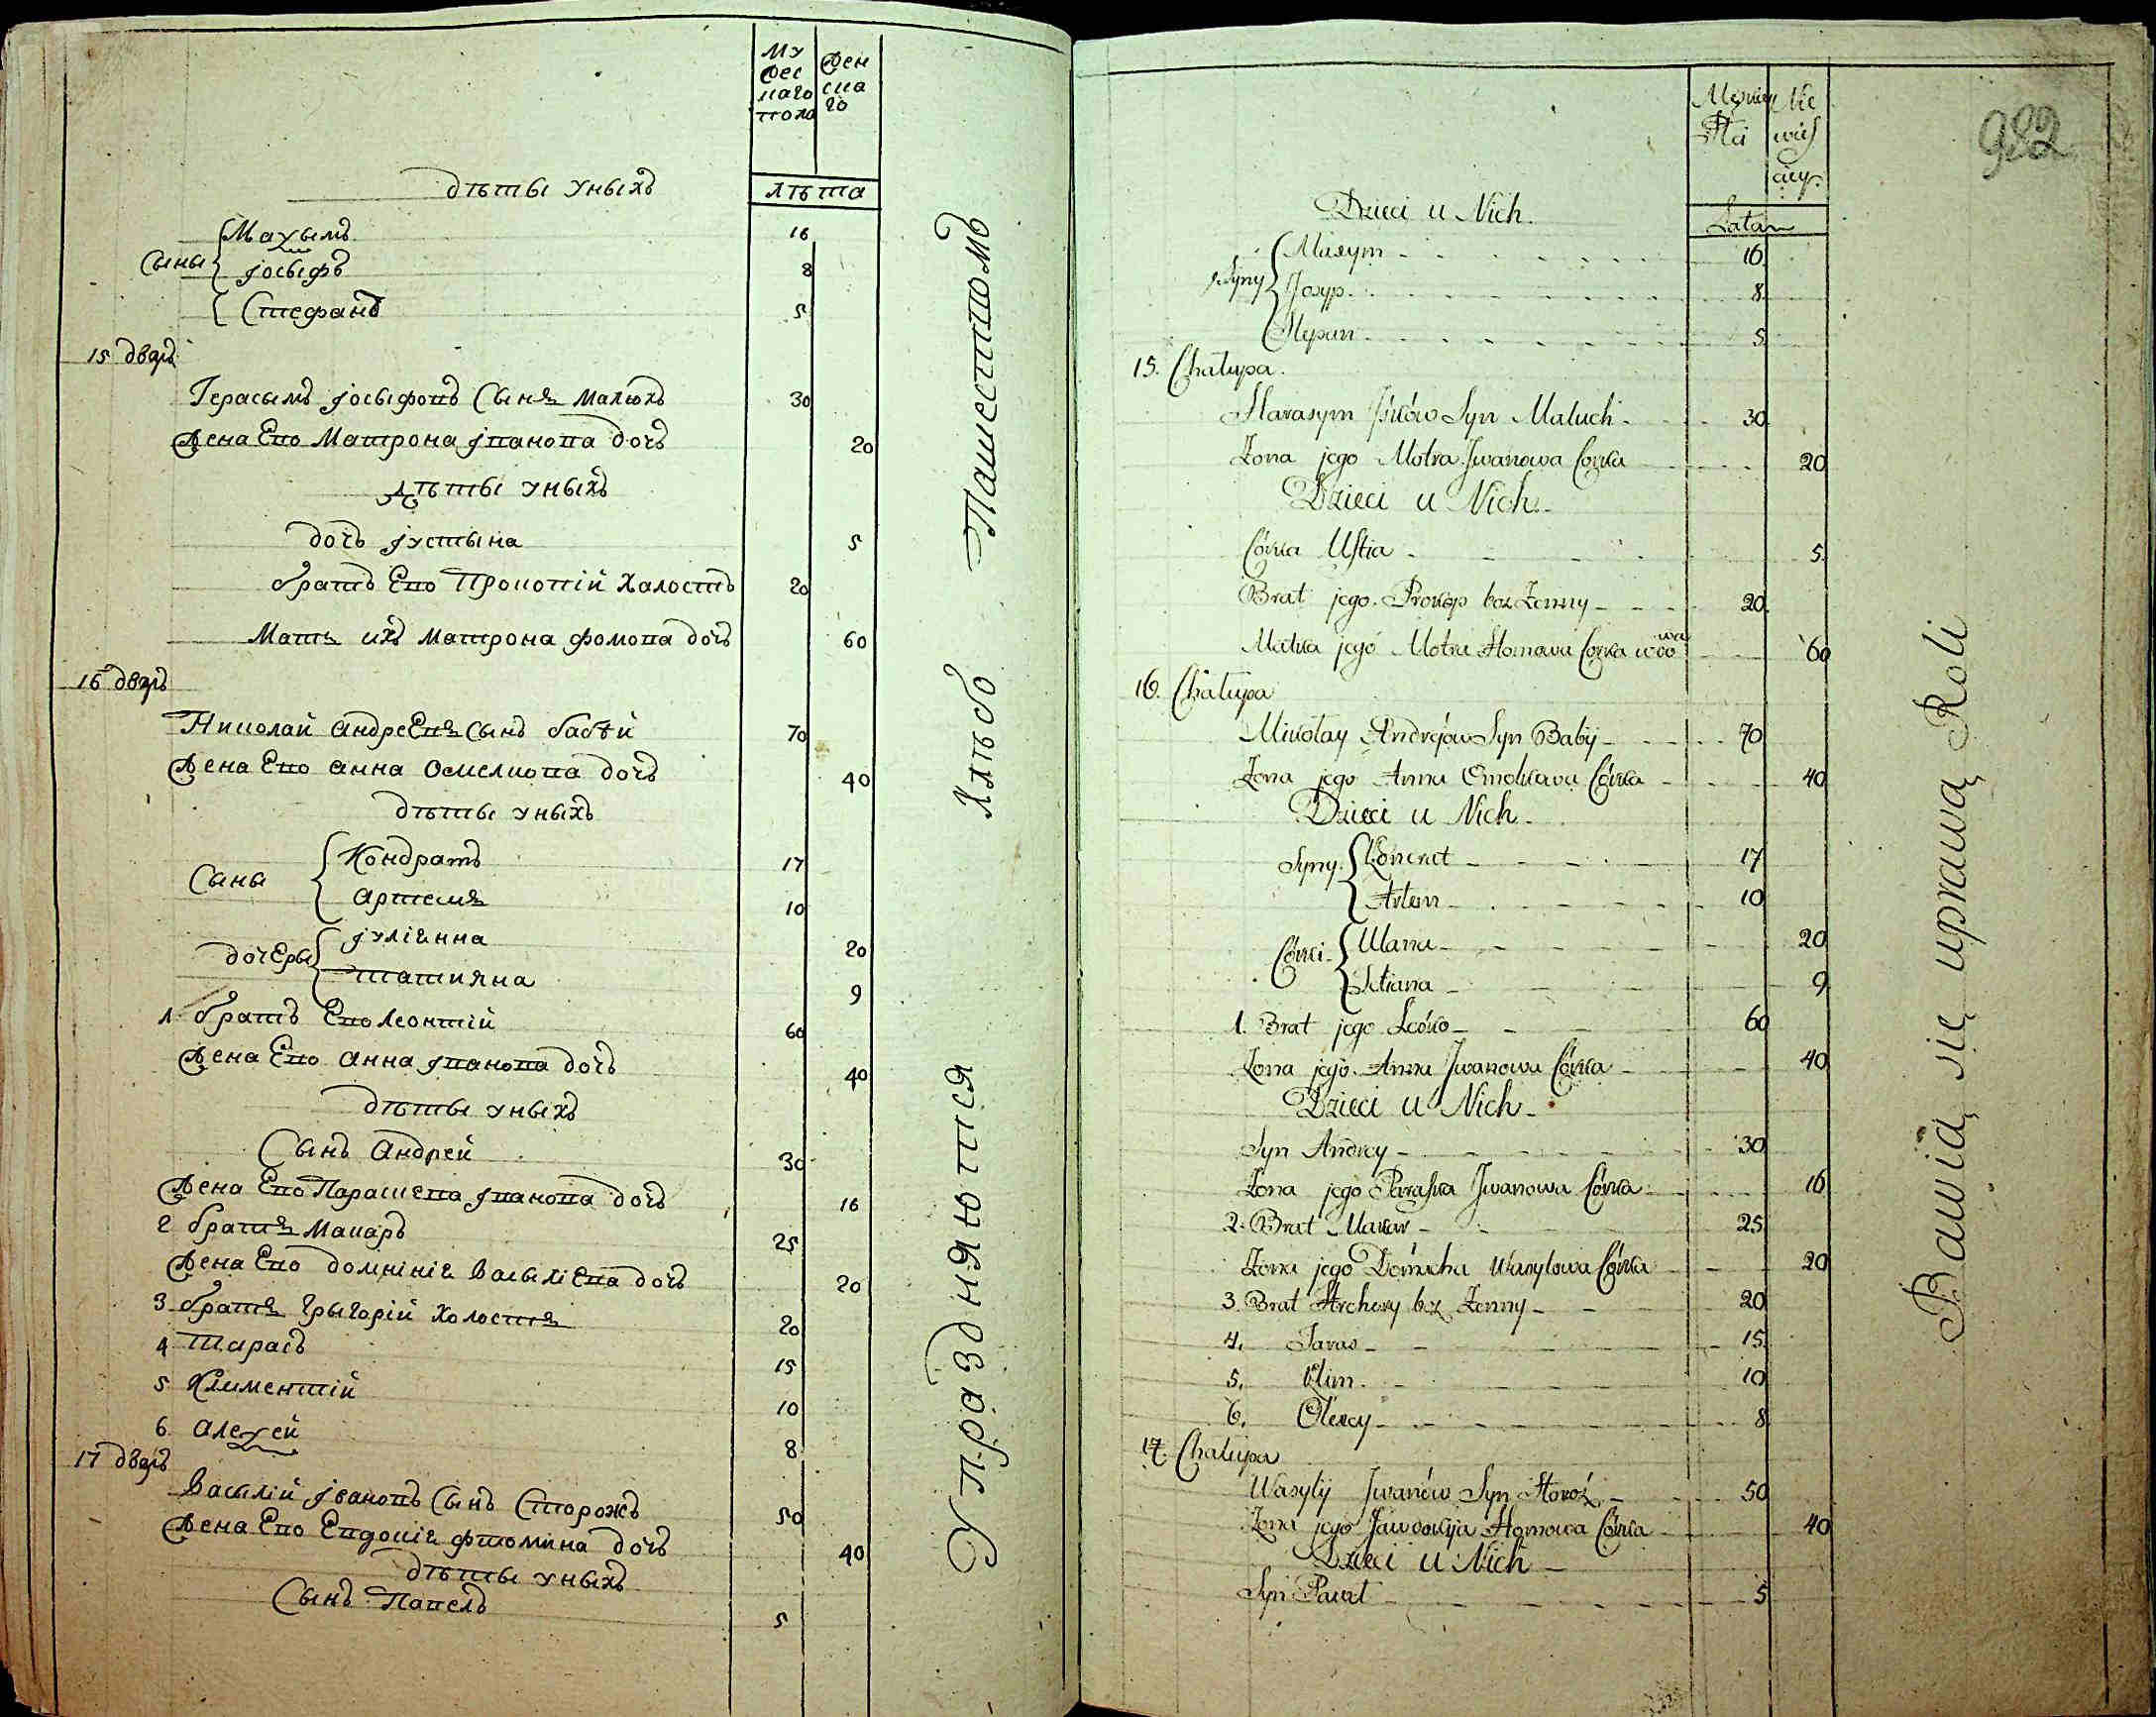 Му
жес
каго
пола
Жен
ска
го
дѣты уныхъ
лѣта
Сыны
Маѯымъ 16
Іосыфъ 8
Стефанъ 5
15 дворъ
Герасымъ Іосыфовъ Сынъ Малюхъ 30
Жена Его Матрона Іванова дочь 20
Дѣты уныхъ
дочь Іустына 5
братъ Его Прокопій Халостъ 20
Мать ихъ Матрона Фомова дочь 60
16 дворъ
Николай андреевъ Сынъ бабѣй 70
Жена Его анна Омелкова дочь 40
дѣты уныхъ
Сыны
Кондратъ 17
артемъ 10
дочеры
Іуліанна 20
татияна 9
1 братъ Его Леонтій 60
Жена Его анна Іванова дочь 40
дѣты уныхъ
Сынъ андрей 30
Жена Его Параскева Іванова дочь 16
2 братъ Макаръ 25
Жена Его домникіа Васыліева дочь 20
3 братъ Грыгорій Холостъ 20
4 Тарасъ 15
5 Климентій 10
6 алеѯей 8
17 дворъ
Васылій Івановъ Сынъ Сторожъ 50
Жена Его Евдокіа Фтомина дочь 40
дѣты уныхъ
Сынъ Павелъ 5
Упраздняются Хлѣбо Пашеством
982
Męzkiey
Płci
Nie
wieś
ciey
Latam
Dzieci u Nich.
Syny
Maxym 16
Josyp 8
Stepan 5
15. Chałupa.
Harasym Jśków Syn Maluch 30
Żona jego Motra Jwanowa Córka 20
Dzieci u Nich
Córka Ustia 5
Brat jego Prokop bez Zenny 20
Matka jego Motra Homowa Córka wdowa 60
16. Chałupa
Mikołay Andrejów Syn Babij 70
Żona jego Anna Omelkowa Córka 40
Dzieci u Nich
Syny
Kondrat 17
Artem 10
Córki
Ulana 20
Tetiana 9
1. Brat jego Lewko 60
Żona jego Anna Jwanowa Córka 40
Dzieci u Nich
Syn Andrey 30
Żona jego Paraska Jwanowa Córka 16
2. Brat Makar 25
Żona jego Domicha Wasylowa Córka 20
3. Brat Hrehory bez Zenny 20
4. Taras 15
5. Klim 10
6. Olexey 8
17. Chałupa
Wasylij Jwanów Syn Storoż 50
Żona jego Jawdokija Homowa Córka 40
Dzieci u Nich
Syn Paweł 5
Bawią się uprawą Roli